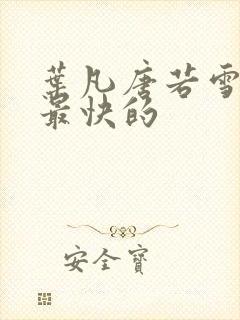 葉凡唐若雪
最快的
安全寶